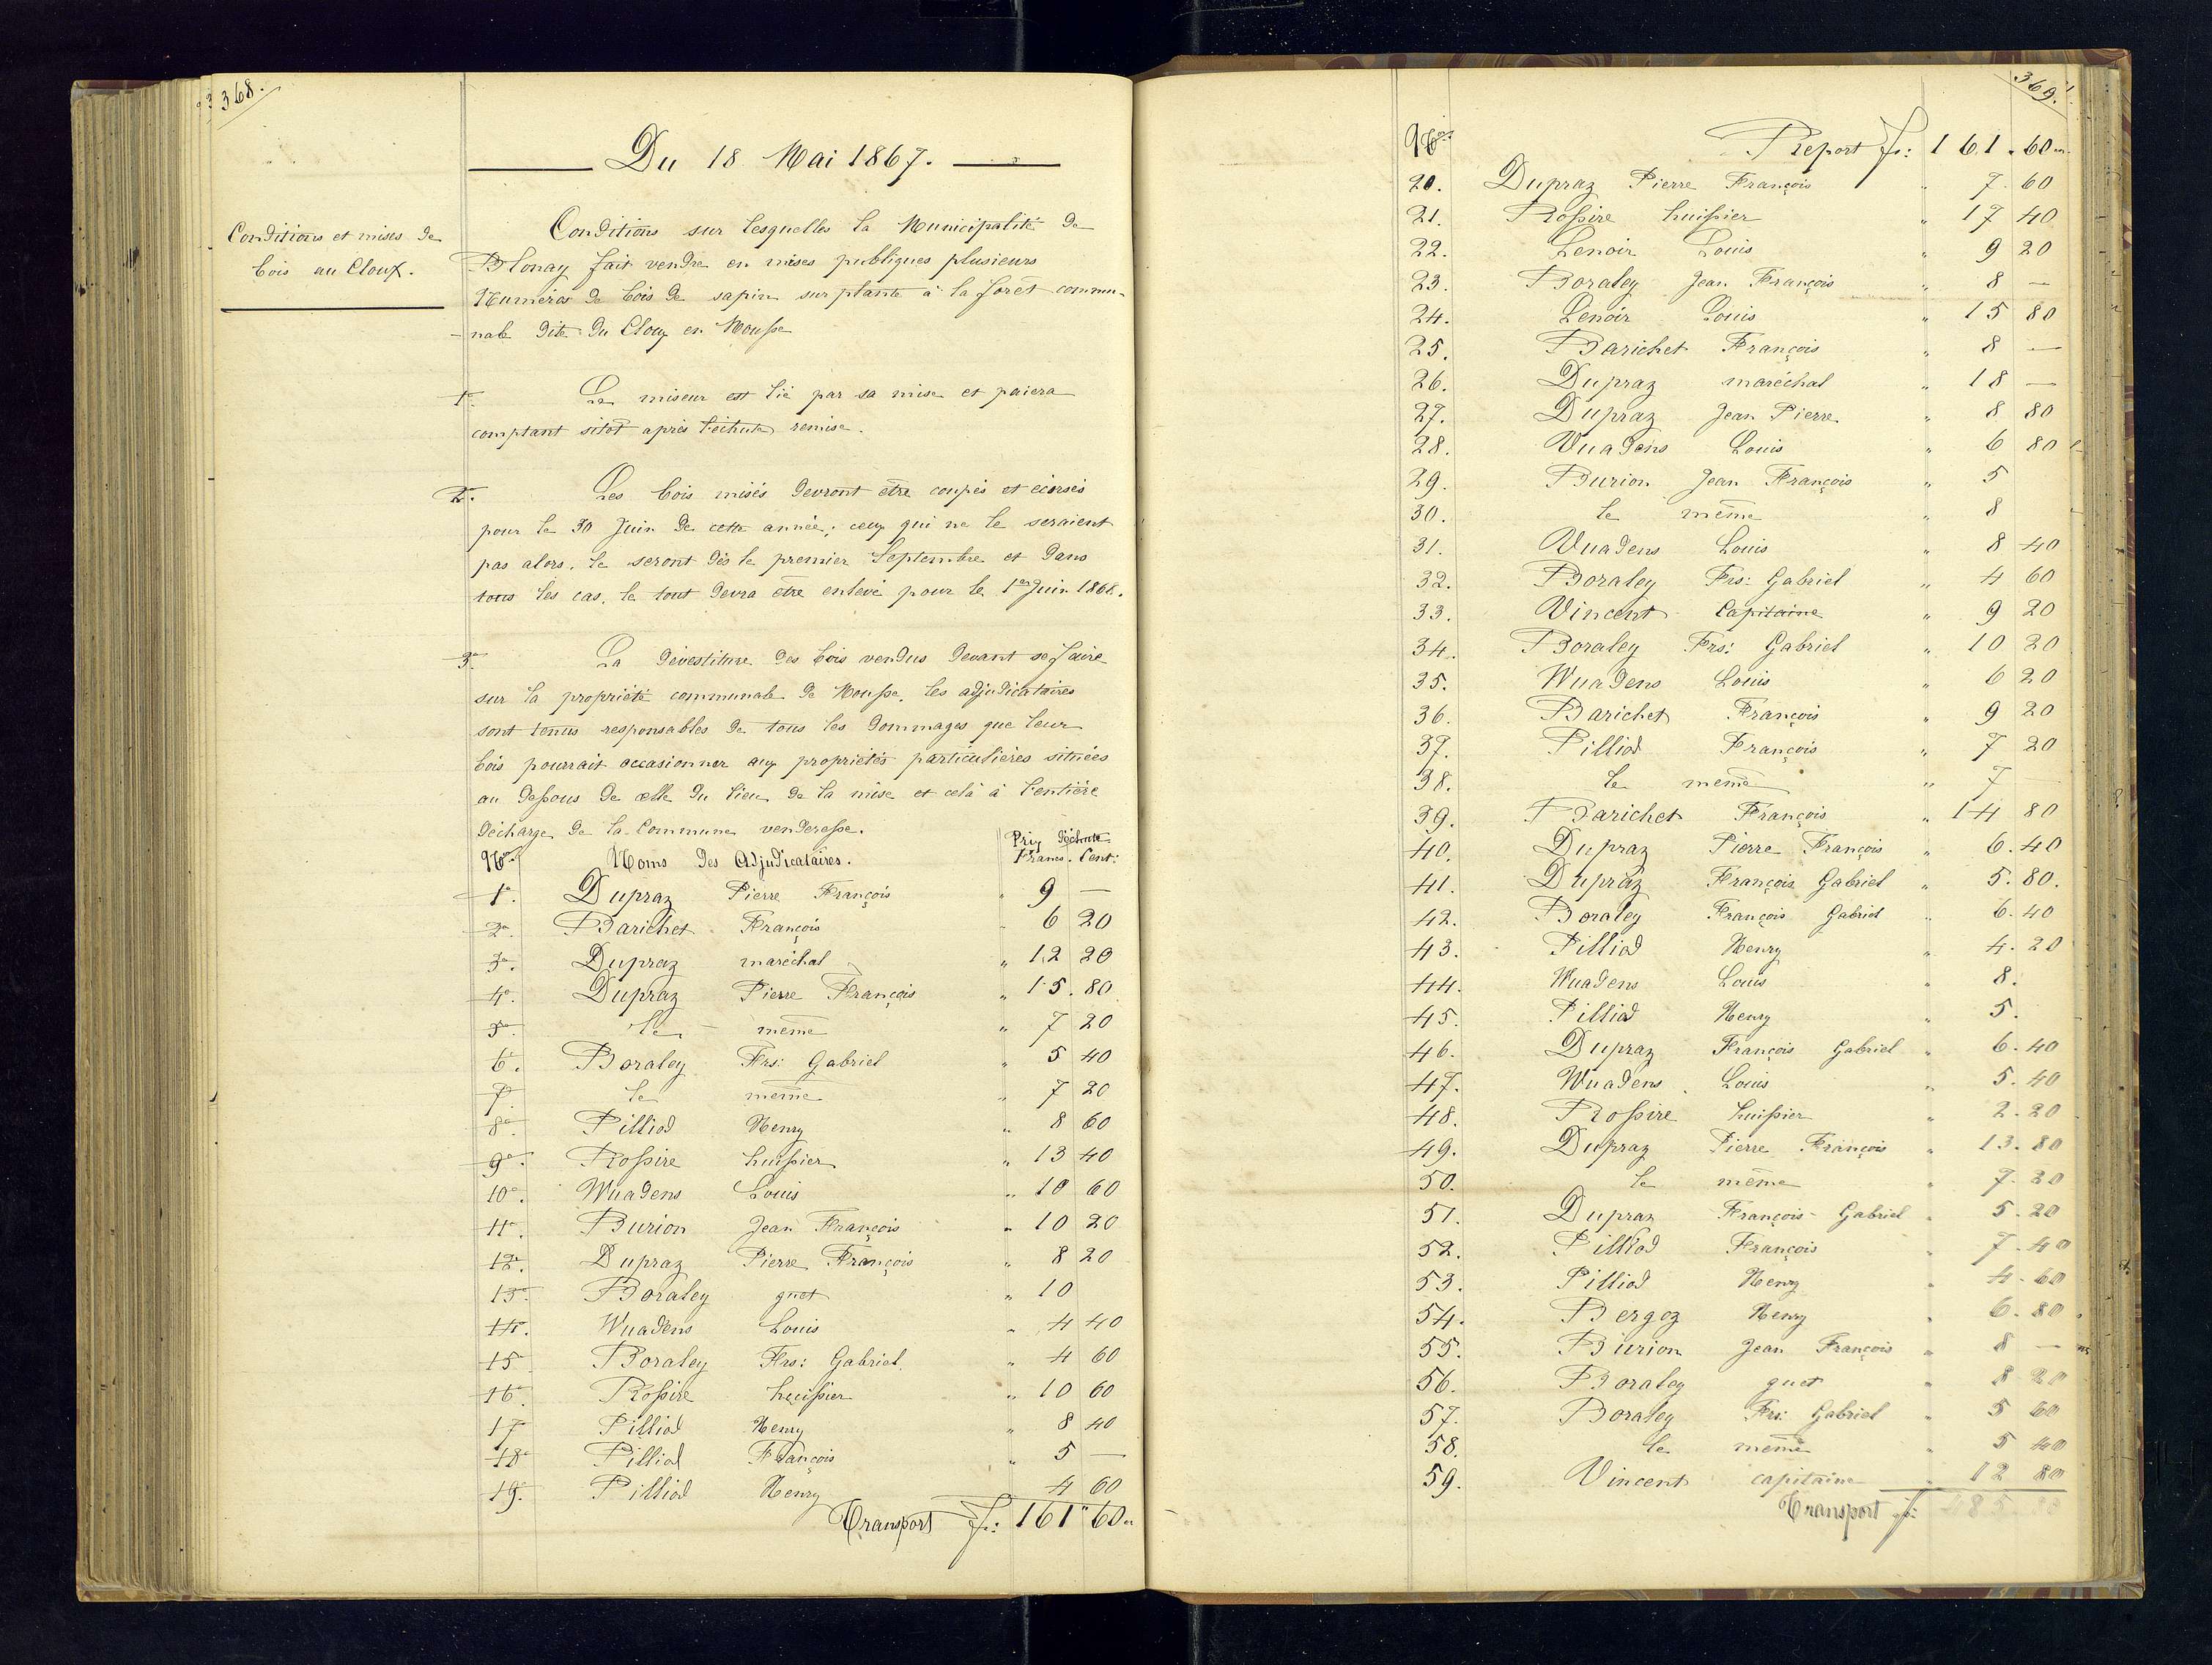 368.
Du 18 Mai 1867.
Conditions et mises de
bois au Cloux.
Conditions sur lesquelles la Municipalité de
Blonay fait vendre en mises publiques plusieurs
Numéros de bois de sapin sur plante à la foret commu-
nale dite du Cloux en Mousse
1° Le miseur est lié par sa mise et paiera
comptant sitôt après l'échute remise.
2°. Les bois misés devront être coupés et écorsés
pour le 30 Juin de cette année; ceux qui ne le seraient
pas alors, le seront dès le premier Septembre et dans
tous les cas, le tout devra être enlevé pour le 1er Juin 1868.
3° La dévestiture des bois vendus devant se faire
sur la propriété communale de Mousse, les adjudicataires
sont tenus responsables de tous les dommages que leur
bois pourrait occasionner aux propriétés particulières situées
au dessous de celle du lieu de la mise et celà à l'entière
décharge de la Commune venderesse.
Nos Noms des Adjudicataires. Prix d'échute Francs. Cent:
1°. Dupraz Pierre François " 9 —
2°. Barichet François " 6 20
3°. Dupraz maréchal " 12 20
4°. Dupraz Pierre François " 15. 80
5°. le même " 7 20
6°. Boraley Frs: Gabriel " 5 40
7°. le même " 7 20
8°. Pilliod Henry " 8 60
9°. Rossire huissier " 13 40
10°. Wuadens Louis " 10 60
11°. Burion Jean François " 10 20
12°. Dupraz Pierre François " 8 20
13°. Boraley guet " 10
14°. Wuadens Louis " 4 40
15° Boraley Frs: Gabriel. " 4 60
16°. Rossire huissier " 10 60
17° Pilliod Henry " 8 40
18° Pilliod François " 5 —
19°. Pilliod Henry 4 60
Transport fr: 161 " 60 "
369.
Nos Report fr: 161 . 60 "
20. Dupraz Pierre François " 7. 60
21. Rossire huissier " 17 40
22. Lenoir Louis " 9 20
23. Boraley Jean François " 8 —
24. Lenoir Louis " 15 80
25. Barichet François " 8 —
26. Dupraz maréchal " 18 —
27. Dupraz Jean Pierre " 8 80
28. Vuadens Louis " 6 80
29. Burion Jean François " 5
30. le même " 8
31. Vuadens Louis " 8 40
32. Boraley Frs: Gabriel " 4 60
33. Vincent Capitaine " 9 20
34. Boraley Frs: Gabriel " 10 20
35. Wuadens Louis " 6 20
36. Barichet François " 9 20
37. Pilliod François " 7 20
38. le même " 7 —
39. Barichet François " 14 80
40. Dupraz Pierre François " 6. 40
41. Dupraz François Gabriel " 5. 80.
42. Boraley François Gabriel " 6. 40
43. Pilliod Henry " 4. 20
44. Wuadens Louis " 8.
45. Pilliod Henry " 5.
46. Dupraz François Gabriel " 6. 40
47. Wuadens Louis " 5. 40
48. Rossire huissier " 2. 20
49. Dupraz Pierre François " 13. 80
50. le même " 7. 20
51. Dupraz François Gabriel " 5. 20
52. Pilliod François " 7. 40
53. Pilliod Henry " 4. 60
54. Bergoz Henry " 6. 80
55. Burion Jean François " 8 —
56. Boraley guet " 8 20
57. Boraley Frs: Gabriel " 5 60
58. le même " 5 40
59. Vincent capitaine " 12 80
Transport fr: